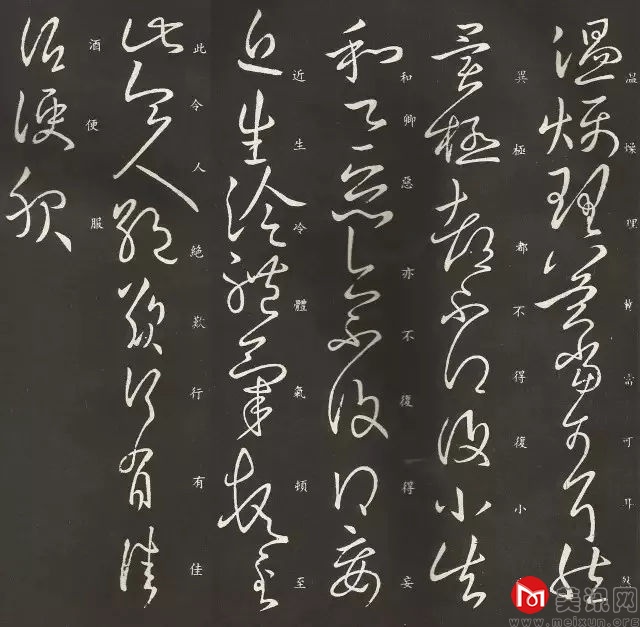 温燥理當可耳
異極都不得復小
和卿惡亦不復得妄
近生冷體氣頓至
此令人絕歎行有佳
酒便服
美讯网
www.meixun.org